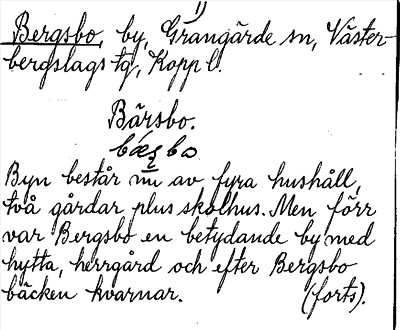 1)
Bergsbo, by, Grangärde sn, Väster-
bergslags tg, Kopp l.
Bärsbo.
Byn består nu av fyra hushåll,
två gårdar plus skolhus. Men förr
var Bergsbo en betydande by med
hytta, herrgård och efter Bergsbo
bäcken kvarnar. (forts).